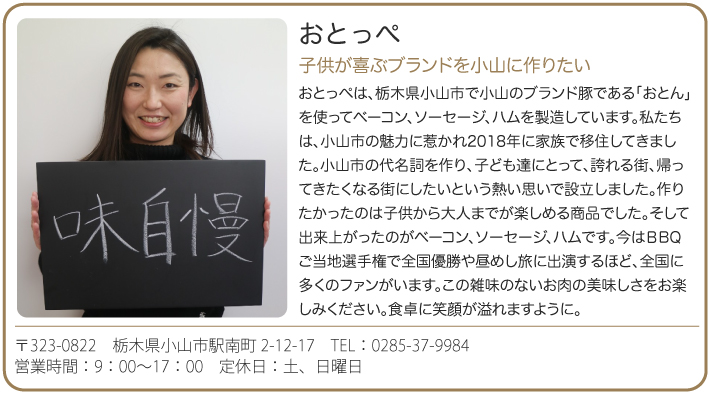 おとっぺ
子供が喜ぶブランドを小山に作りたい
おとっぺは、栃木県小山市で小山のブランド豚である「おとん」
を使ってベーコン、ソーセージ、ハムを製造しています。私たち
は、小山市の魅力に惹かれ2018年に家族で移住してきまし
た。小山市の代名詞を作り、子ども達にとって、誇れる街、帰っ
てきたくなる街にしたいという熱い思いで設立しました。作り
たかったのは子供から大人までが楽しめる商品でした。そして
出来上がったのがベーコン、ソーセージ、ハムです。今はBBQ
ご当地選手権で全国優勝や昼めし旅に出演するほど、全国に
多くのファンがいます。この雑味のないお肉の美味しさをお楽
しみください。食卓に笑顔が溢れますように。
味自慢
〒323-0822　栃木県小山市駅南町 2-12-17　TEL：0285-37-9984
営業時間：9：00～17：00　定休日：土、日曜日